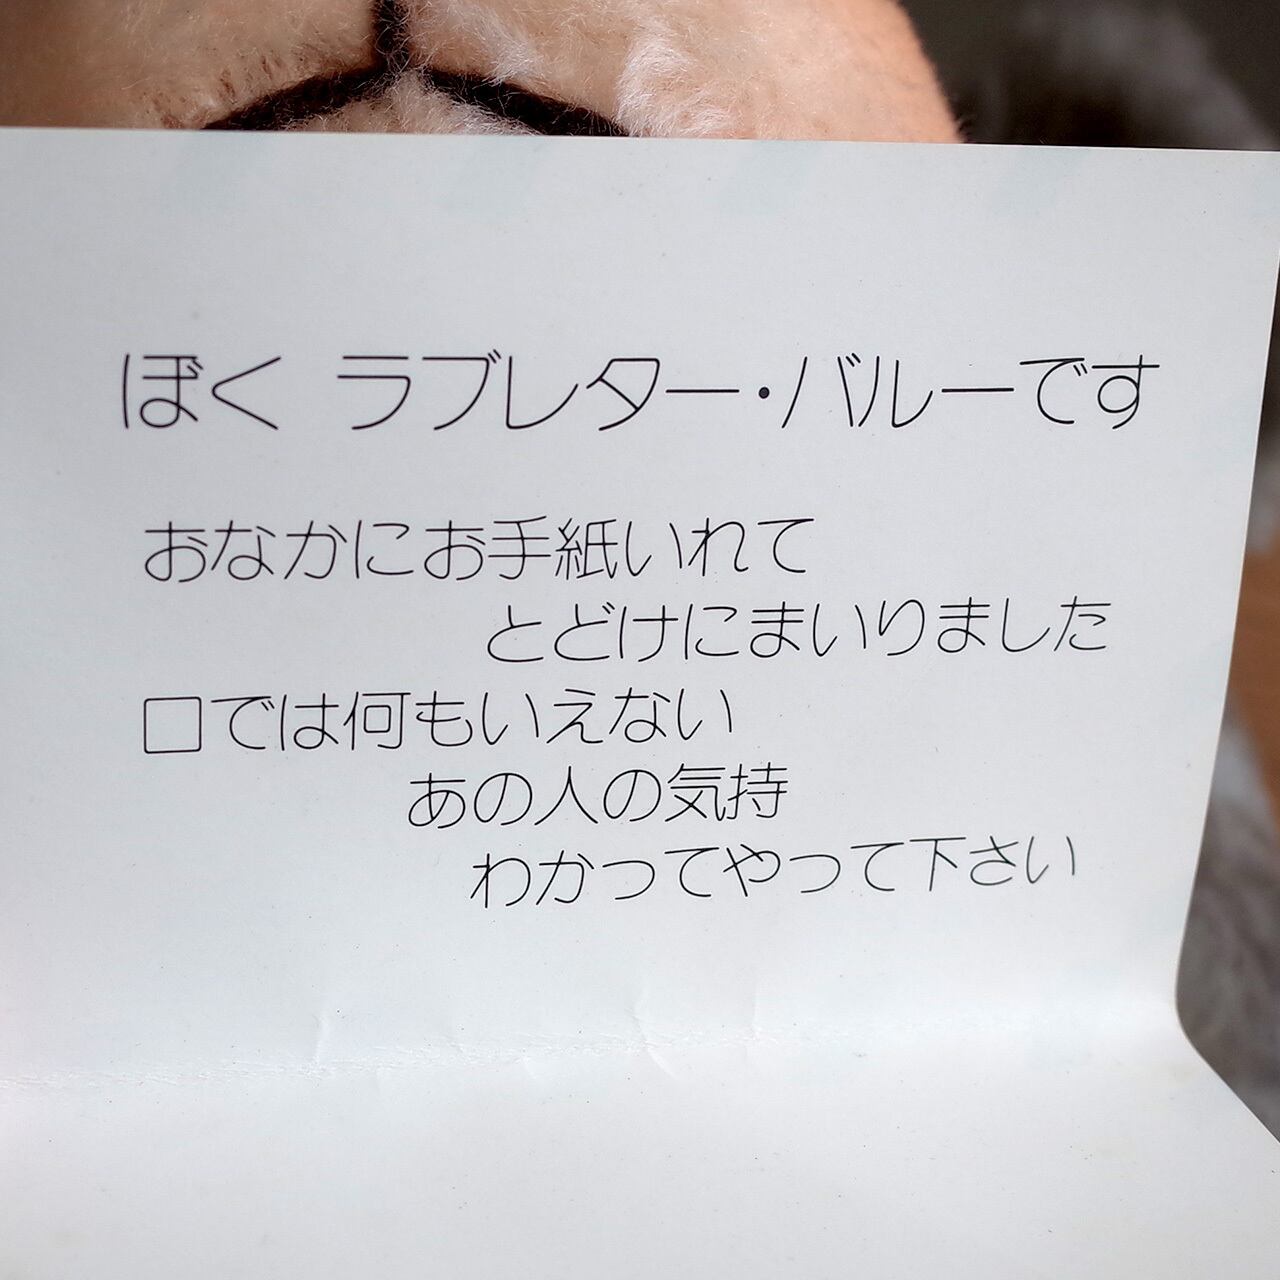 ぼく ラブレター・バルーです
おなかにお手紙いれて
とどけにまいりました
口では何もいえない
あの人の気持
わかってやって下さい